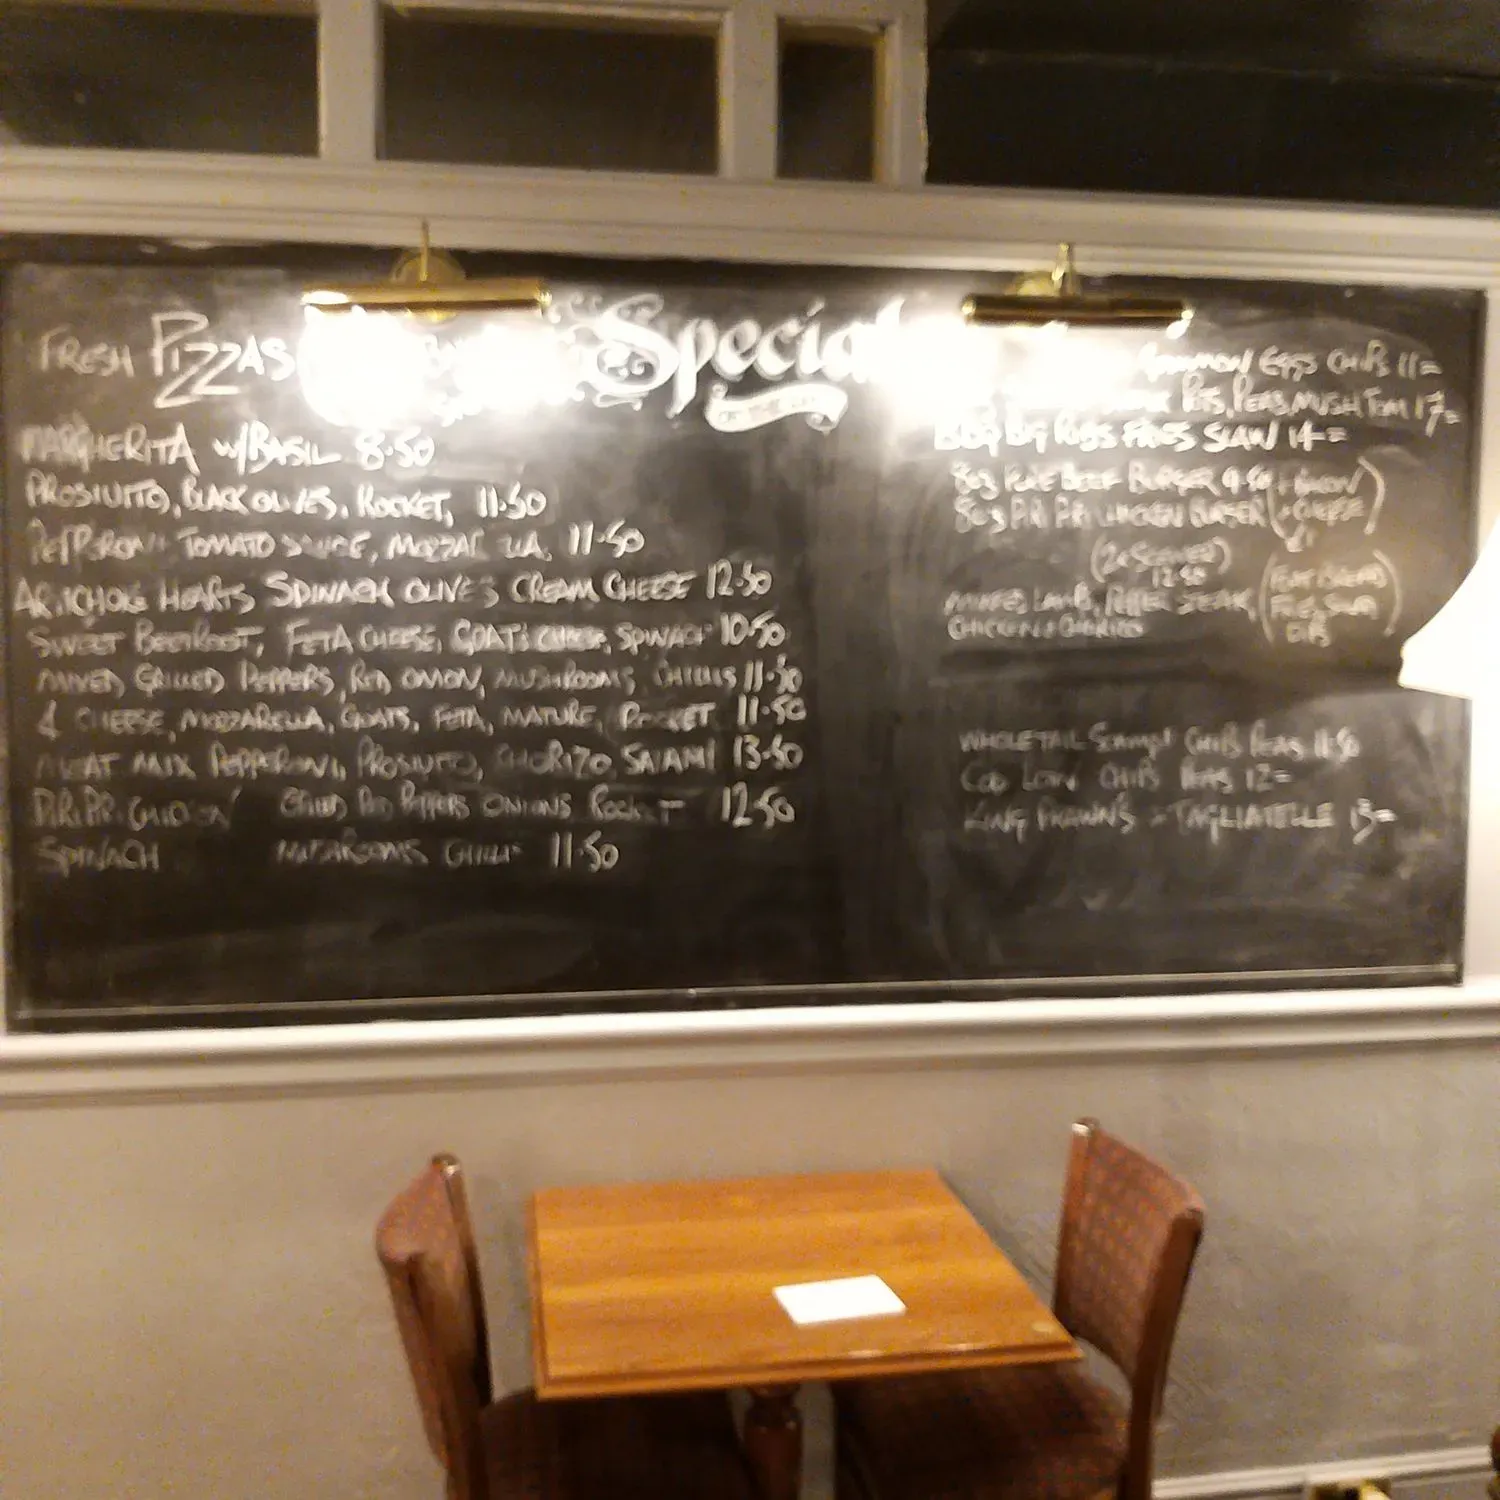 FRESH PIZZAS
Special
MARGHERITA W/BASIL 8.50
PROSIUTTO, BLACK OLIVES, ROCKET, 11.50
PEPPERONI TOMATO SAUCE, MOZZARELLA, 11.50
ARTICHOKE HEARTS SPINACH OLIVES CREAM CHEESE 12.50
SWEET BEETROOT, FETA CHEESE, GOATS CHEESE, SPINACH 10.50
MIXED GRILLED PEPPERS, RED ONION, MUSHROOMS, CHILLIS 11.50
4 CHEESE, MOZZARELLA, GOATS, FETA, MATURE, ROCKET 11.50
MEAT MIX PEPPERONI, PROSIUTO, CHORIZO SALAMI 13.50
PIRI PIRI CHICKEN GRILLED RED PEPPERS ONIONS ROCKET 12.50
SPINACH MUSHROOMS CHILLI 11.50
GAMMON EGGS CHIPS 11=
PEAS, MUSH TOM 17=
BBQ RIBS FRIES SLAW 14=
8oz PURE BEEF BURGER 9.50 + BACON
8oz PIRI PIRI CHICKEN BURGER + CHEESE
12.50
MIXED LAMB, STEAK, FLAT BREAD
CHICKEN & CHORIZO FRIES, SLAW
DIPS
WHOLETAIL SCAMPI CHIPS PEAS 11.50
COD LOIN CHIPS PEAS 12=
KING PRAWNS - TAGLIATELLE 13=